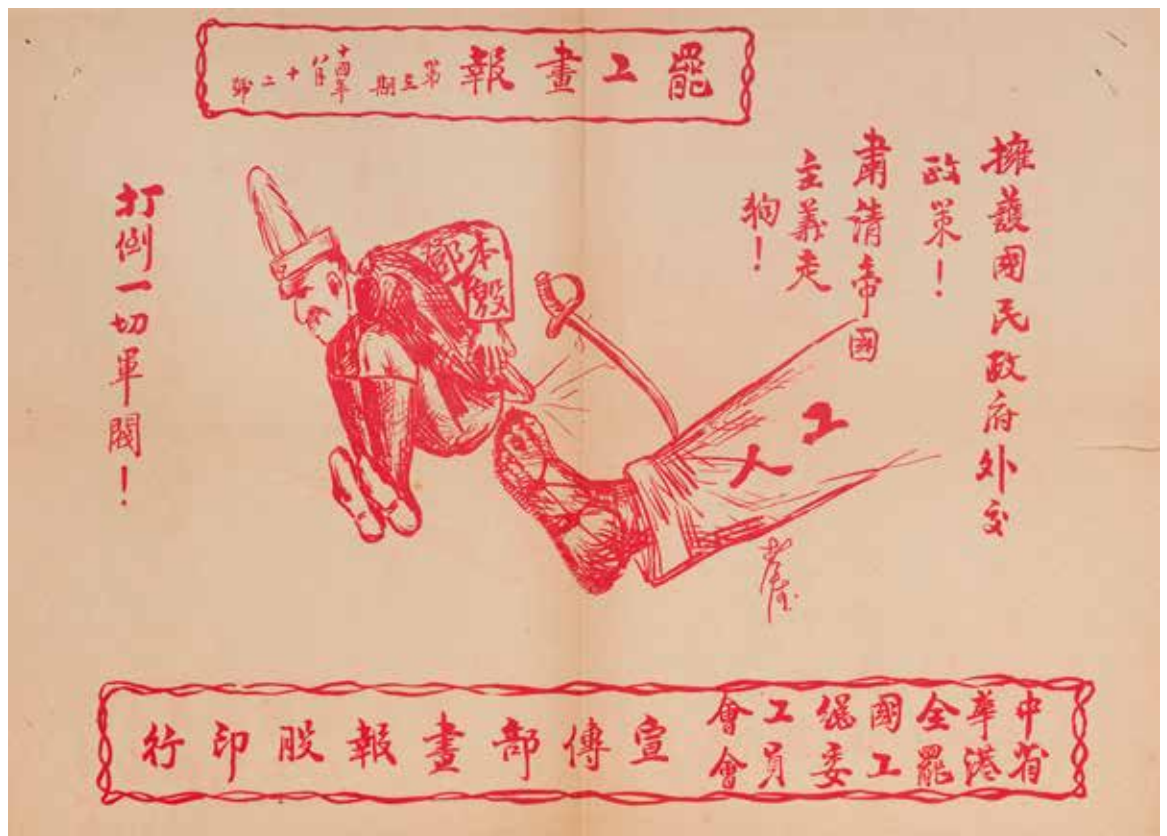 罷工畫報 第三期 十四年八月十二號
擁護國民政府外交
政策！
肅清帝國
主義走
狗！
鄧本殷
工人
打倒一切軍閥！
中華全國總工會
省港罷工委員會
宣傳部畫報股印行